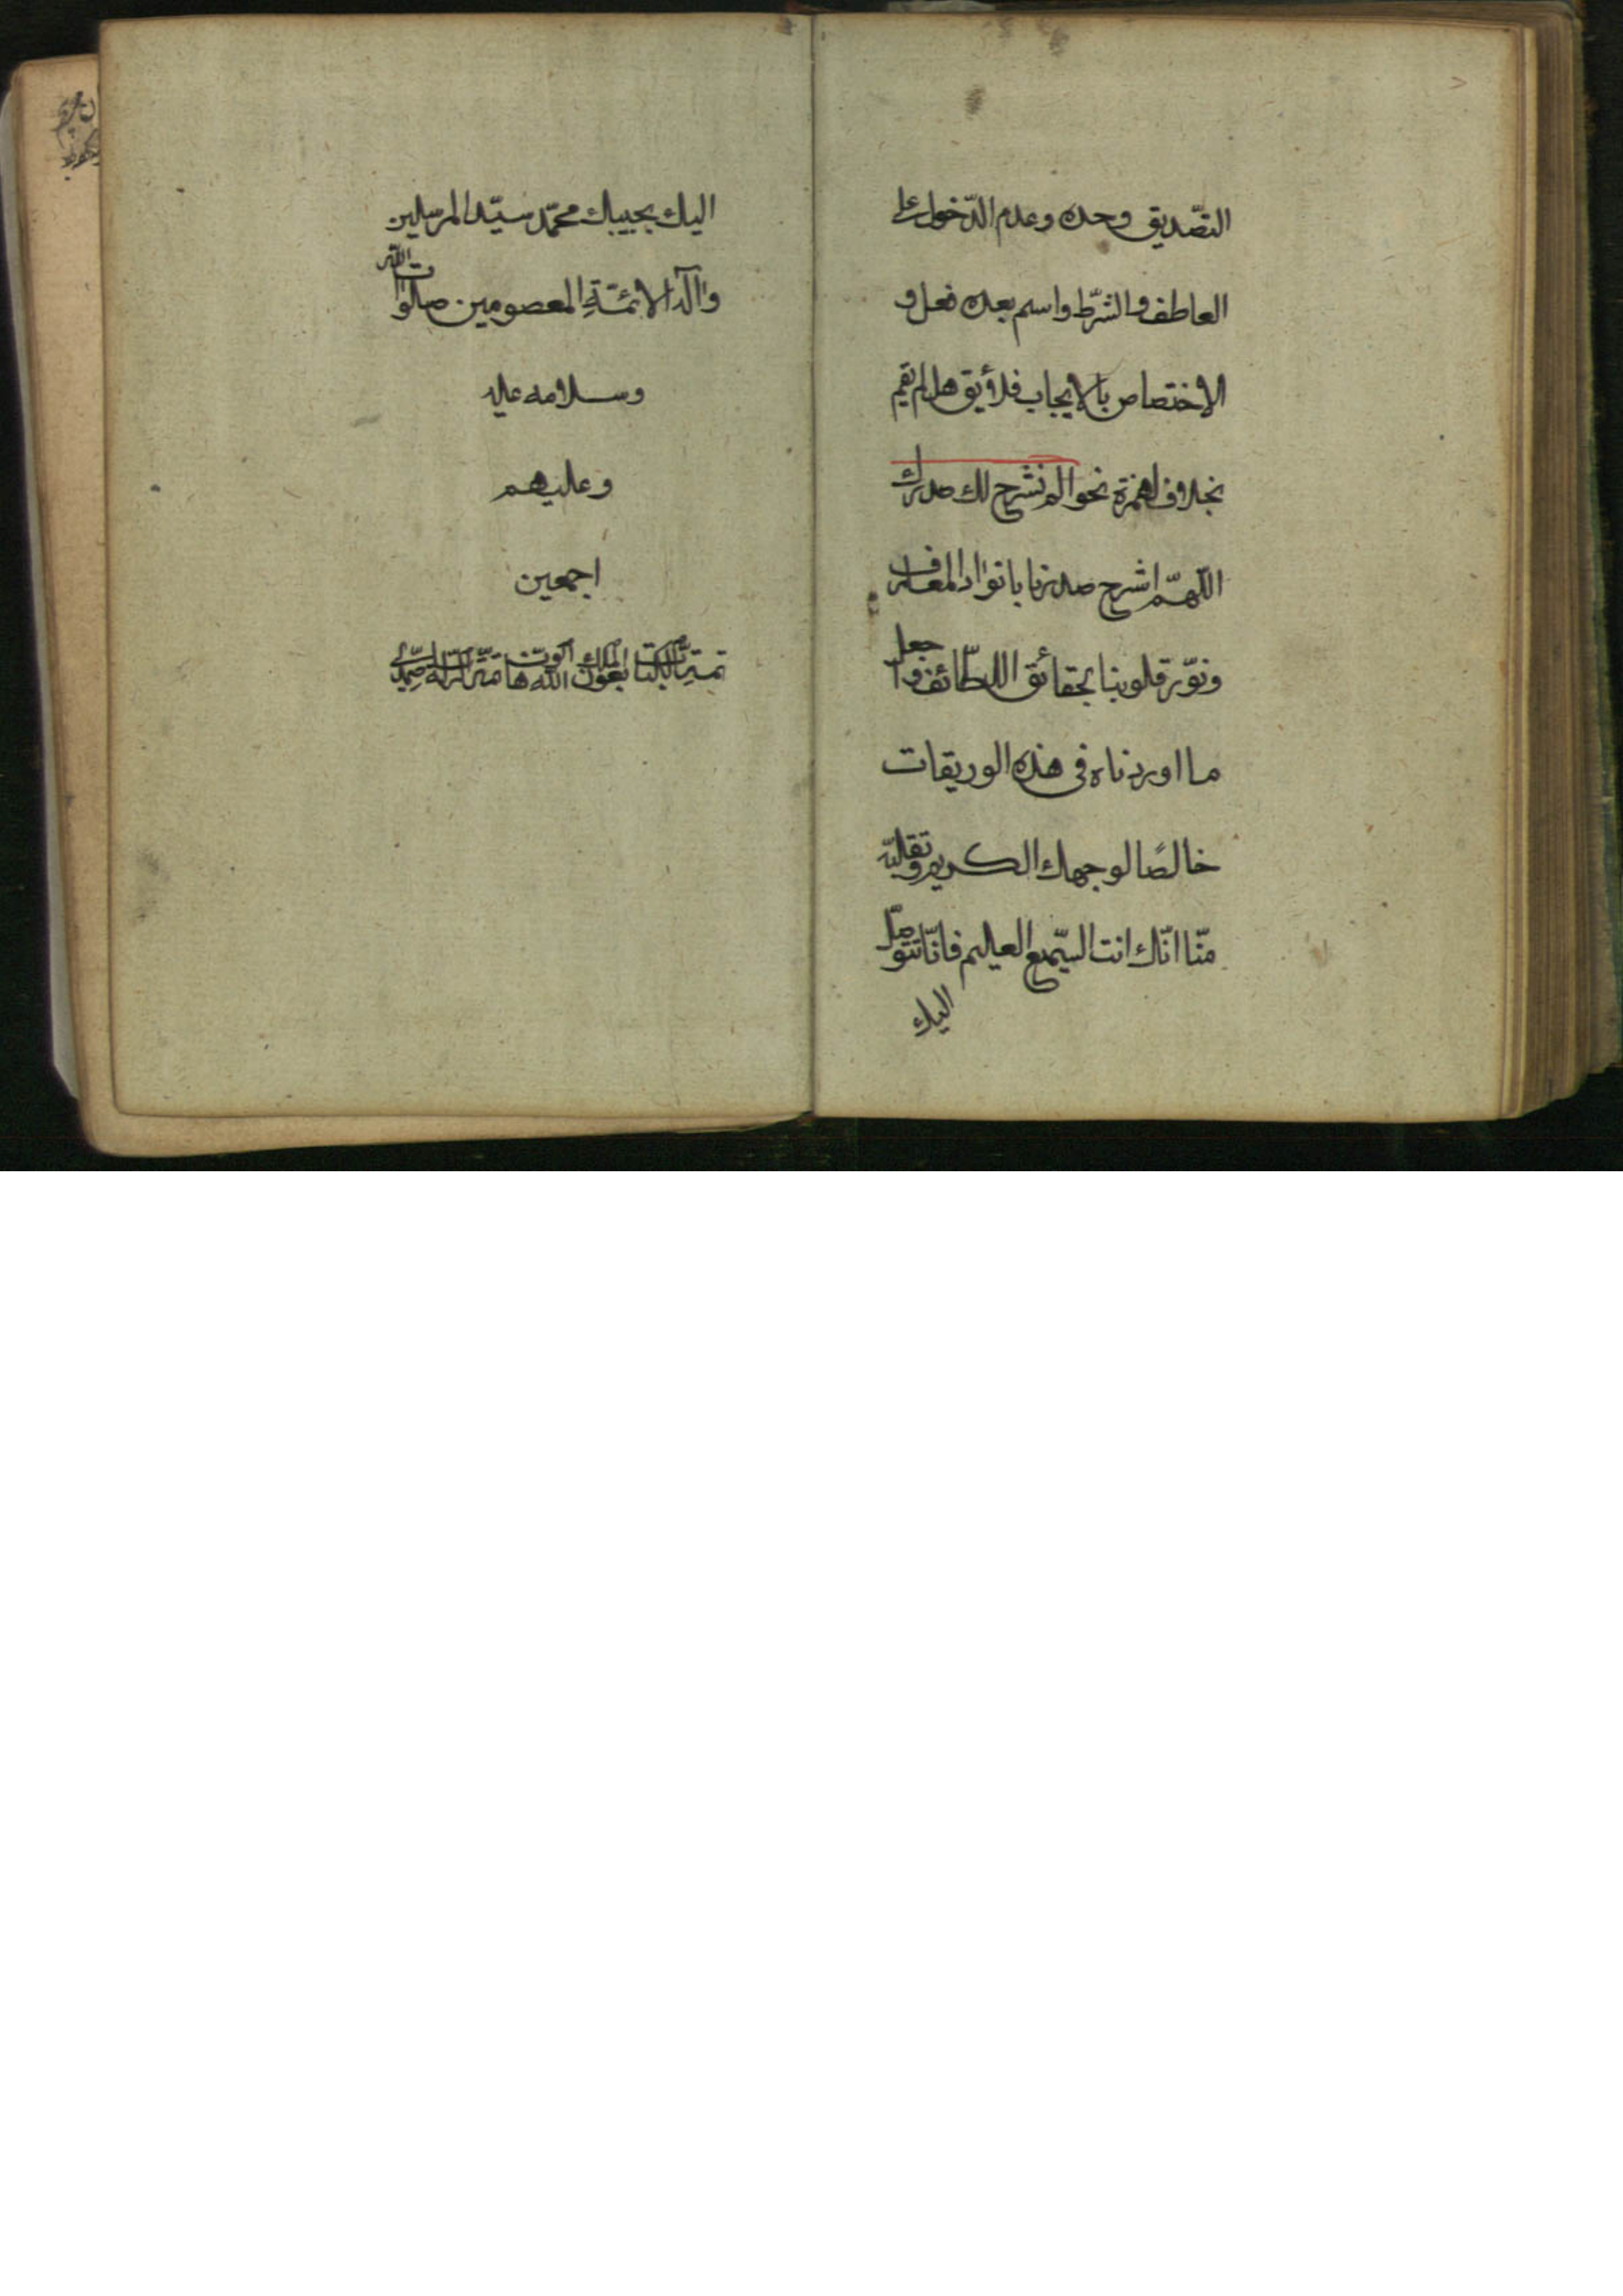 التصّديق وحده وعدم الدّخول على
العاطف والشّرط واسم بعده فعل و
الاختصاص بالايجاب فلا يق هل لم يقم
بخلاف الهمزة نحو الم نشرح لك صدرك
اللّهمّ اشرح صدرنا بانوار المعارف
ونوّر قلوبنا بحقائق اللطّائف واجعل
ما اوردناه فى هذه الوريقات
خالصًا لوجهك الكريم وتقبّله
منّا انّك انت السّميع العليم فانّا نتوصّل
اليك
اليك بحبيبك محمّد سيّد المرسلين
وآله الائمّةِ المعصومين صلوات الله
وسلامه عليه
وعليهم
اجمعين
تمت الكتاب بعون الملك الله